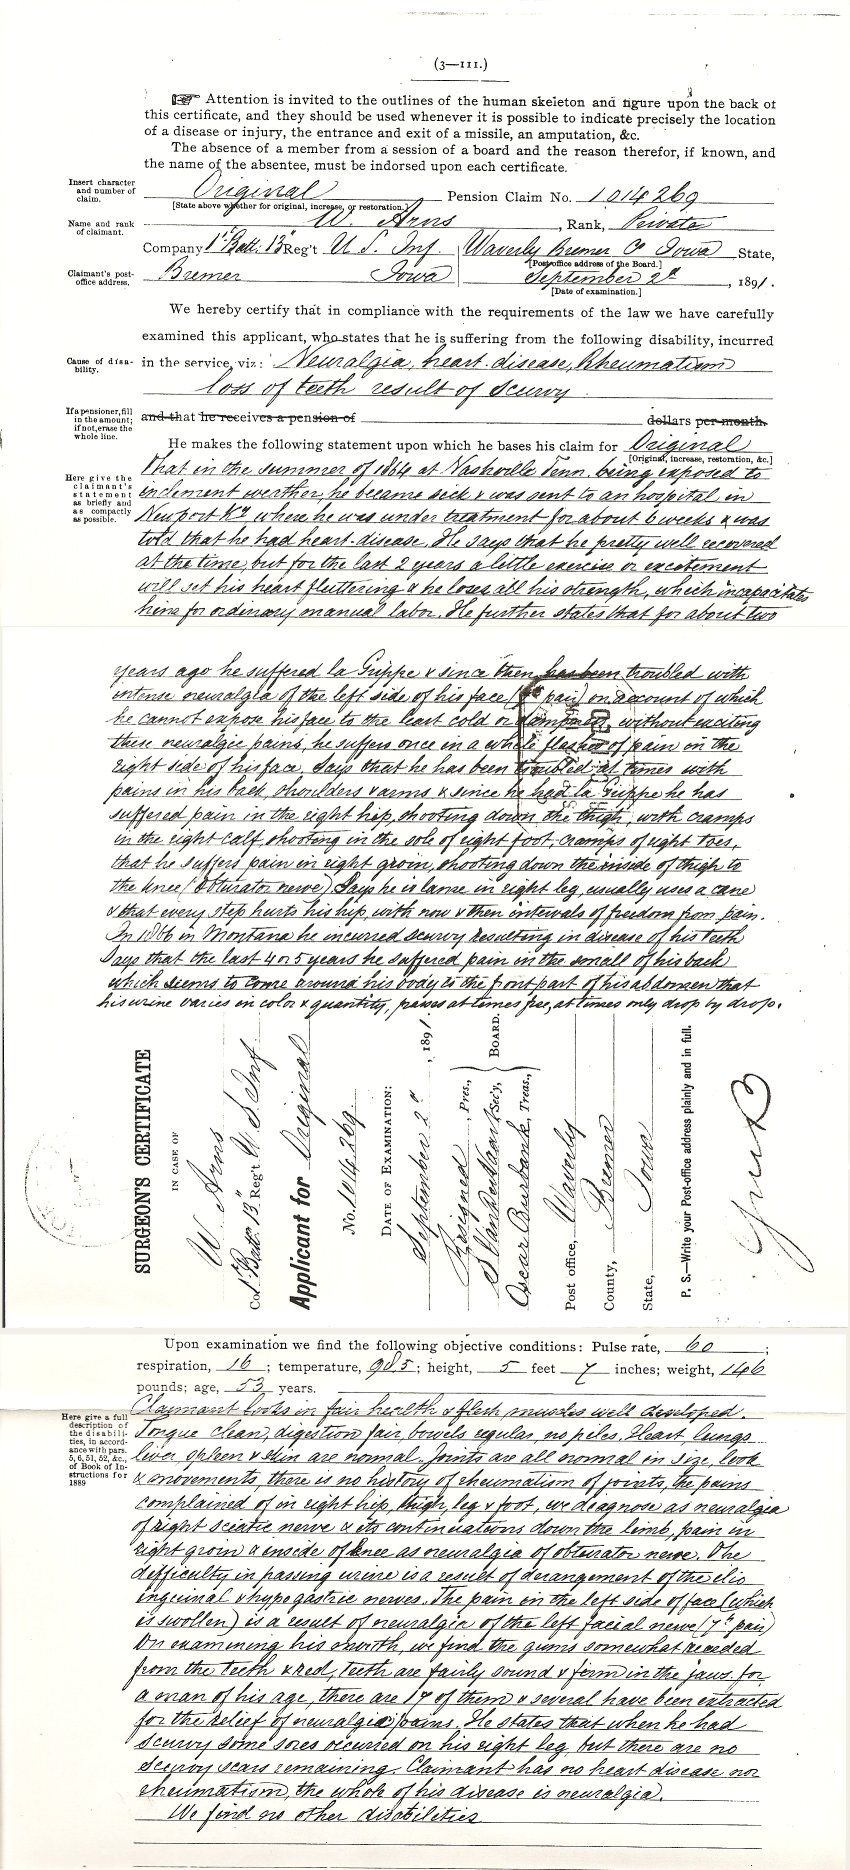 (3—III.)
☞ Attention is invited to the outlines of the human skeleton and figure upon the back of
this certificate, and they should be used whenever it is possible to indicate precisely the location
of a disease or injury, the entrance and exit of a missile, an amputation, &c.
The absence of a member from a session of a board and the reason therefor, if known, and
the name of the absentee, must be indorsed upon each certificate.
Insert character and number of claim.
Original Pension Claim No. 1014269
[State above whether for original, increase, or restoration.]
Name and rank of claimant.
W. Arns, Rank, Private
Company 1" Batt. 13" Reg't U. S. Inf. Waverly Bremer Co Iowa State,
[Post-office address of the Board.]
Claimant's post-office address,
Bremer Iowa September 2d, 1891.
[Date of examination.]
We hereby certify that in compliance with the requirements of the law we have carefully
examined this applicant, who states that he is suffering from the following disability, incurred
Cause of disability.
in the service, viz: Neuralgia, heart-disease, Rheumatism
loss of teeth result of scurvy
If a pensioner, fill in the amount; if not, erase the whole line.
and that he receives a pension of dollars per month.
He makes the following statement upon which he bases his claim for Original
[Original, increase, restoration, &c.]
Here give the claimant's statement as briefly and as compactly as possible.
That in the summer of 1864 at Nashville Tenn. being exposed to
inclement weather, he became sick & was sent to an hospital, in
Newport Ky where he was under treatment for about 6 weeks & was
told that he had heart-disease. He says that he pretty well recovered
at the time, but for the last 2 years a little exercise or excitement
will set his heart fluttering & he loses all his strength, which incapacitates
him for ordinary manual labor. He further states that for about two
years ago he suffered la Grippe & since then has been troubled with
intense neuralgia of the left side of his face (7th pair) on account of which
he cannot expose his face to the least cold or dampness, without exciting
these neuralgic pains, he suffers once in a while flashes of pain in the
right side of his face. Says that he has been troubled at times with
pains in his back, shoulders & arms & since he had la Grippe he has
suffered pain in the right hip, shooting down the thigh, with cramps
in the right calf, shooting in the sole of right foot, cramps of right toes,
that he suffers pain in right groin, shooting down the inside of thigh to
the knee (obturator nerve) Says he is lame in right leg, usually uses a cane
& that every step hurts his hip, with now & then intervals of freedom from pain.
In 1866 in Montana he incurred scurvy resulting in disease of his teeth
Says that the last 4 or 5 years he suffered pain in the small of his back
which seems to come around his body to the front part of his abdomen that
his urine varies in color & quantity, passes at times free, at times only drop by drop.
SURGEON'S CERTIFICATE
IN CASE OF
W Arns
Co. 1" Batt. 13" Reg't U S Inf
Applicant for Original
No. 1014269
DATE OF EXAMINATION:
September 2d, 1891.
Resigned, Pres.,
Sec'y,
Oscar Burbank, Treas.,
BOARD.
Post office, Waverly
County, Bremer
State, Iowa
P. S.—Write your Post-office address plainly and in full.
Upon examination we find the following objective conditions: Pulse rate, 60;
respiration, 16; temperature, 98.5; height, 5 feet 7 inches; weight, 146
pounds; age, 53 years.
Here give a full description of the disabilities, in accordance with pars. 5, 6, 51, 52, &c., of Book of Instructions for 1889
Claimant looks in fair health & flesh, muscles well developed.
Tongue clean, digestion fair, bowels regular, no piles. Heart, lungs
liver, spleen & skin are normal. Joints are all normal in size, look
& movements, there is no history of rheumatism of joints, the pains
complained of in right hip, thigh, leg & foot, we diagnose as neuralgia
of right sciatic nerve & its continuations down the limb, pain in
right groin & inside of knee as neuralgia of obturator nerve. The
difficulty in passing urine is a result of derangement of the ilio
inguinal & hypogastric nerves. The pain in the left side of face (which
is swollen) is a result of neuralgia of the left facial nerve (7th pair)
On examining his mouth, we find the gums somewhat receded
from the teeth & red, teeth are fairly sound & firm in the jaws for
a man of his age, there are 17 of them & several have been extracted
for the relief of neuralgia pains. He states that when he had
scurvy some sores occurred on his right leg, but there are no
scurvy scars remaining. Claimant has no heart disease nor
rheumatism, the whole of his disease is neuralgia.
We find no other disabilities